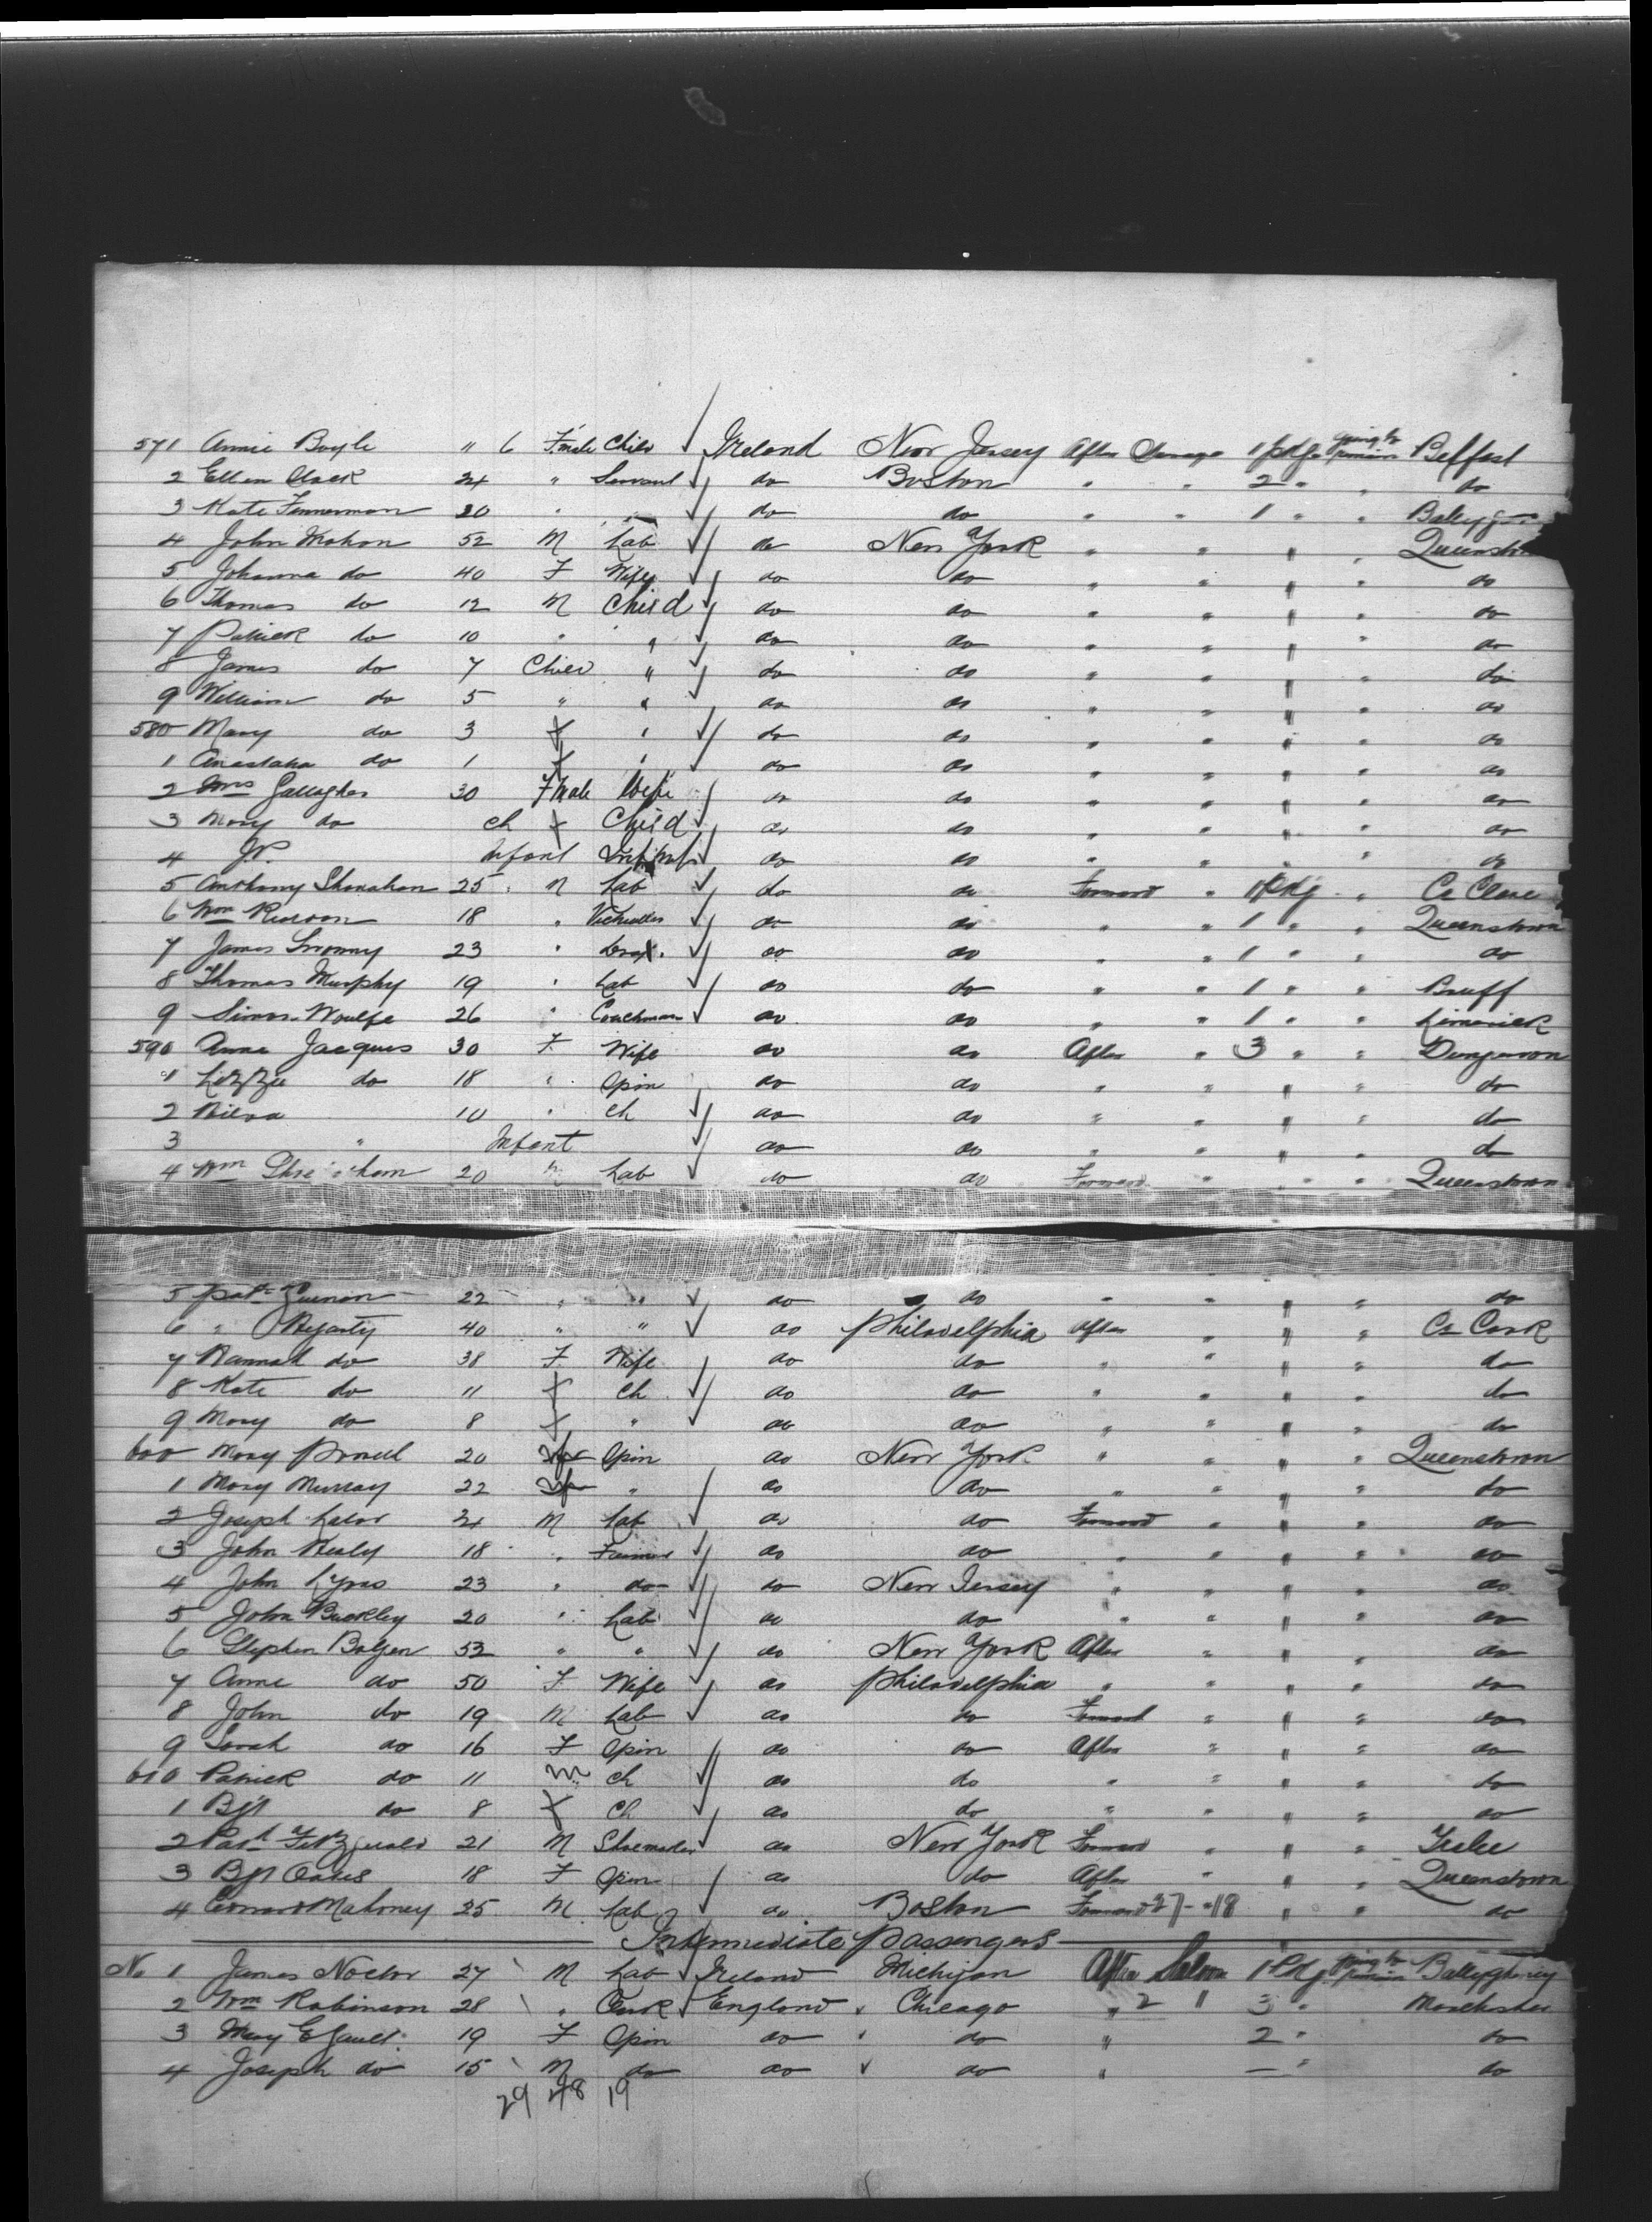 571 Annie Boyle " 6 Fmale Child Ireland New Jersey After Steerage 1 pkge going to remain Belfast
2 Ellen Clack 24 " Servant do Boston " " 2 " " do
3 Kate 20 " " do do " " 1 " "
4 John Mahon 52 M Lab do New York " " " "
5 Johanna do 40 F Wife do do " " " " do
6 Thomas do 12 M Child do do " " " " do
7 Patrick do 10 " " do do " " " " do
8 James do 7 Child " do do " " " do
9 William do 5 " " do do " " " " do
580 Mary do 3 f " do do " " " " do
1 Anastatia do 1 f " do do " " " " do
2 Mrs Gallagher 30 Fmale Wife do do " " " " do
3 Mary do ch f Child do do " " " " do
4 Infant do do " " " " do
5 Anthony Shanahan 25 M Lab do do Forward " 1 Pkg " Co Clare
6 Wm 18 " Victualler do do " " 1 " " Queenstown
7 James 23 " do do " " 1 " " do
8 Thomas Murphy 19 " Lab do do " " 1 " " Bruff
9 Simon Woulfe 26 " Coachman do do " " 1 " " Limerick
590 Anne Jacques 30 F Wife do do After " 3 " " Dungarvan
1 Lizzie do 18 " Spin do do " " " " do
2 10 " ch do do " " " " do
3 " Infant do do " " " " do
4 Wm 20 " Lab do do Forward " " " Queenstown
5 Patk 22 " " do do " " " " do
6 " Hegarty 40 " " do Philadelphia After " " " Co Cork
7 Hannah do 38 F Wife do do " " " " do
8 Kate do 11 f ch do do " " " " do
9 Mary do 8 f " do do " " " " do
600 Mary Powell 20 Spin do New York " " " " Queenstown
1 Mary Murray 22 " do do " " " " do
2 Joseph Lalor 24 M Lab do do Forward " " " do
3 John Healy 18 " Farmer do do " " " " do
4 John Lyons 23 " do do New Jersey " " " " do
5 John Buckley 20 " Lab do do " " " " do
6 Stephen Bolgen 52 " " do New York After " " " do
7 Anne do 50 F Wife do Philadelphia " " " " do
8 John do 19 M Lab do do Forward " " " do
9 Sarah do 16 F Spin do do After " " " do
610 Patrick do 11 m ch do do " " " " do
1 Bgt do 8 f Ch do do " " " " do
2 Patk Fitzgerald 21 M Shoemaker do New York Forward " " " Tralee
3 Bgt Oates 18 F Spin do do After " " " Queenstown
4 Edward Mahoney 25 M Lab do Boston Forward 37 - 18 " " do
Intermediate Passengers
No 1 James Noctor 27 M Lab Ireland Michigan After Saloon 1 Pkg going to remain
2 Wm Robinson 28 " Clerk England Chicago " 2 " 3 " Manchester
3 Mary E Gault 19 F Spin do do " 2 " do
4 Joseph do 15 M do do do " — " do
29 48 19